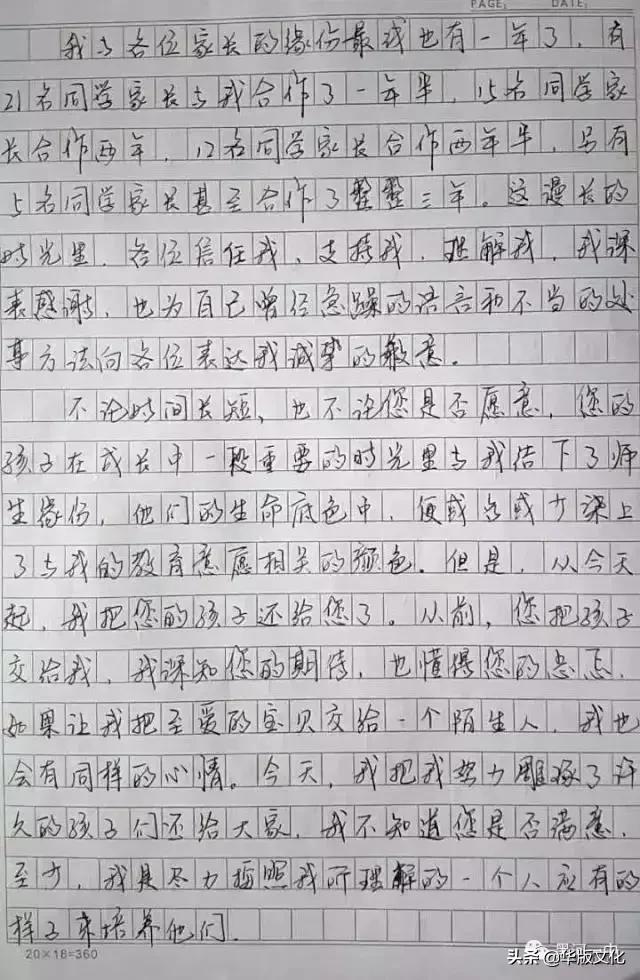 PAGE: DATE:
我与各位家长的缘份最浅也有一年了，有
21名同学家长与我合作了一年半，15名同学家
长合作两年，12名同学家长合作两年半，另有
5名同学家长甚至合作了整整三年。这漫长的
时光里，各位信任我、支持我、理解我，我深
表感谢，也为自己曾经急躁的语言和不当的处
事方法向各位表达我诚挚的歉意。
不论时间长短，也不论您是否愿意，您的
孩子在成长中一段重要的时光里与我结下了师
生缘份，他们的生命底色中，便或多或少染上
了与我的教育意愿相关的颜色。但是，从今天
起，我把您的孩子还给您了。从前，您把孩子
交给我，我深知您的期待，也懂得您的忐忑，
如果让我把至爱的宝贝交给一个陌生人，我也
会有同样的心情。今天，我把我努力雕琢了许
久的孩子们还给大家，我不知道您是否满意，
至少，我是尽力按照我所理解的一个人应有的
样子来培养他们。
20×18=360
黑河一中
头条@华版文化